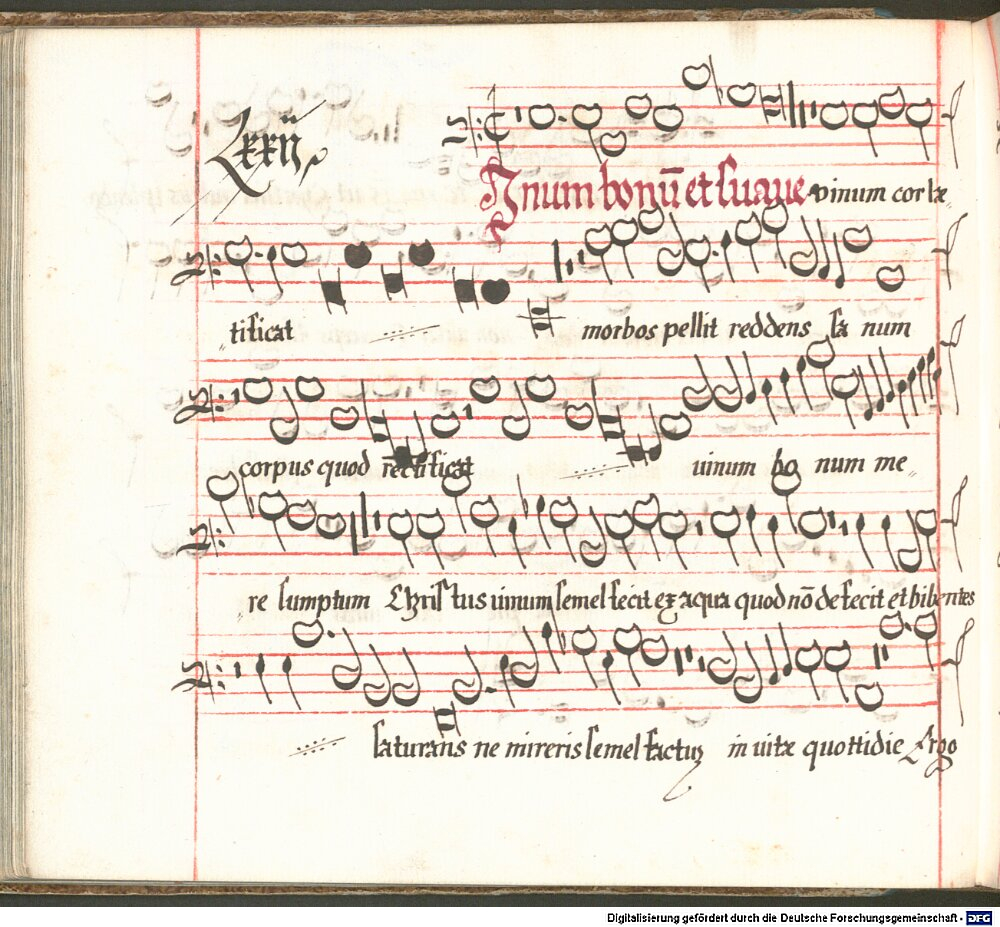 Lxxij
Vinum bonū et suaue vinum cor læ„
„tificat morbos pellit reddens sa num
corpus quod rectificat uinum bo num me„
„re sumptum Christus uinum semel fecit ex aqua quod nō defecit et bibentes
saturans ne mireris semel factuʒ in uitæ quottidie Ergo
Digitalisierung gefördert durch die Deutsche Forschungsgemeinschaft - DFG